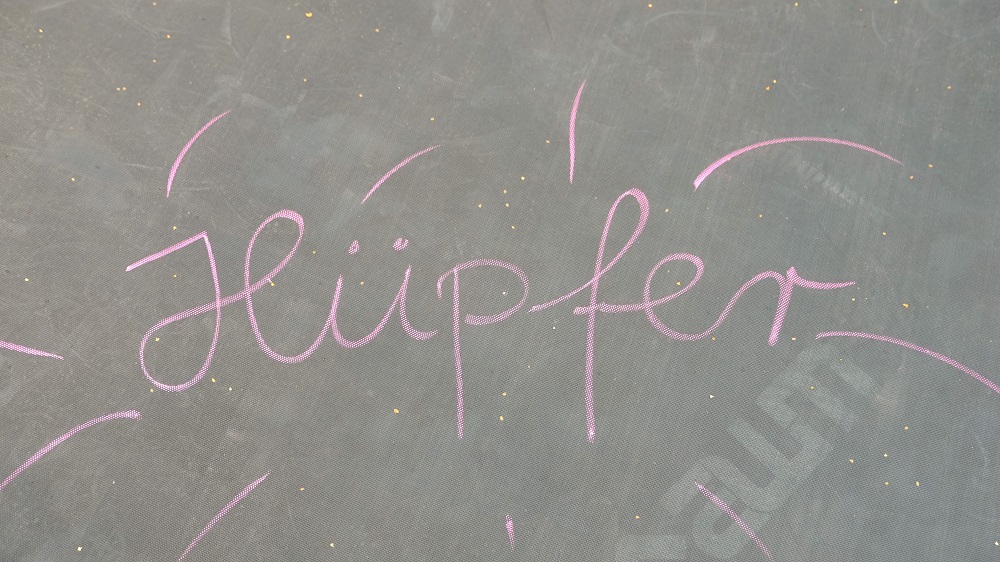 Hüpfer